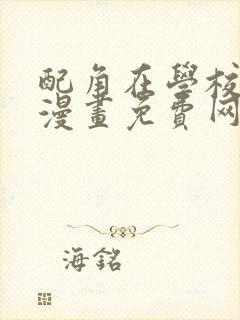 配角在學校
漫畫免費网
海銘